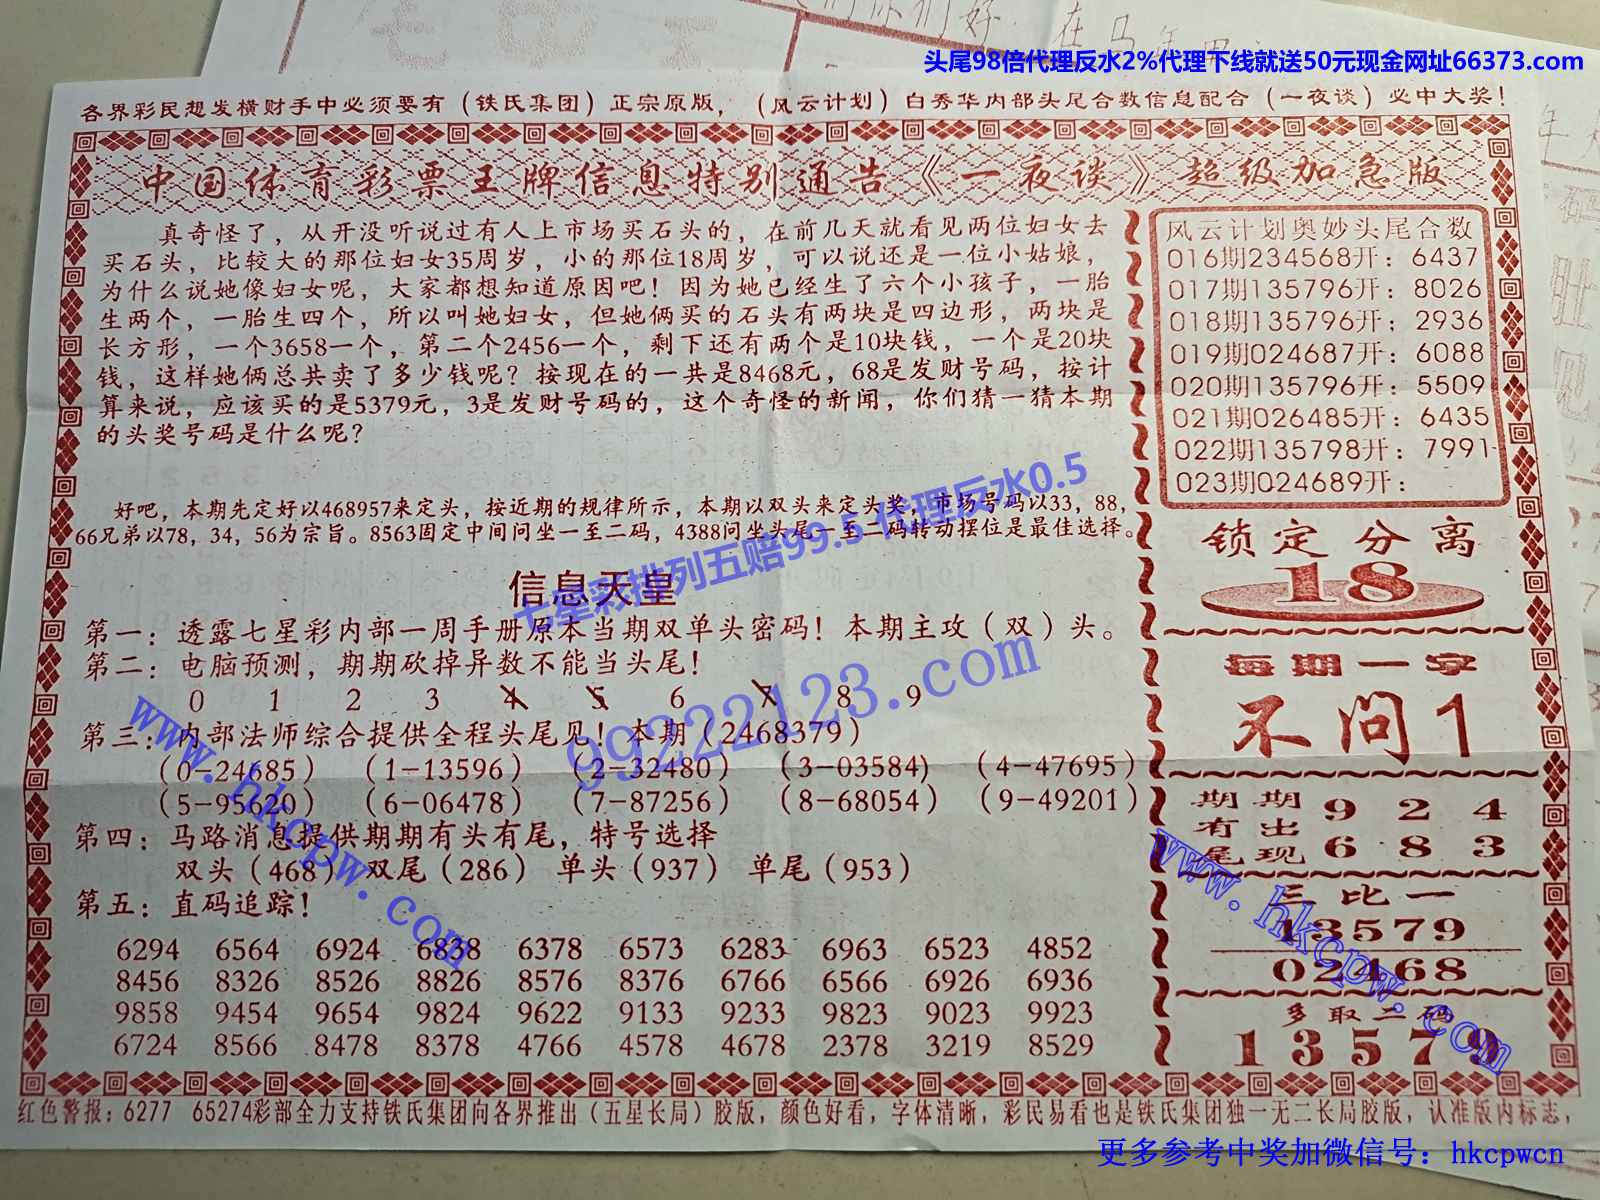 头尾98倍代理反水2%代理下线就送50元现金网址66373.com
各界彩民想发横财手中必须要有（铁氏集团）正宗原版，（风云计划）白秀华内部头尾合数信息配合（一夜谈）必中大奖！
中国体育彩票王牌信息特别通告《一夜谈》超级加急版
真奇怪了，从开没听说过有人上市场买石头的，在前几天就看见两位妇女去
买石头，比较大的那位妇女35周岁，小的那位18周岁，可以说还是一位小姑娘，
为什么说她像妇女呢，大家都想知道原因吧！因为她已经生了六个小孩子，一胎
生两个，一胎生四个，所以叫她妇女，但她俩买的石头有两块是四边形，两块是
长方形，一个3658一个，第二个2456一个，剩下还有两个是10块钱，一个是20块
钱，这样她俩总共卖了多少钱呢？按现在的一共是8468元，68是发财号码，按计
算来说，应该买的是5379元，3是发财号码的，这个奇怪的新闻，你们猜一猜本期
的头奖号码是什么呢？
好吧，本期先定好以468957来定头，按近期的规律所示，本期以双头来定头奖，市场号码以33，88，
66兄弟以78，34，56为宗旨。8563固定中间问坐一至二码，4388问坐头尾一至二码转动摆位是最佳选择。
七星彩排列五赔99.5 代理反水0.5
信息天皇
第一：透露七星彩内部一周手册原本当期双单头密码！本期主攻（双）头。
第二：电脑预测，期期砍掉异数不能当头尾！
0 1 2 3 4 5 6 7 8 9
第三：内部法师综合提供全程头尾见！本期（2468379）
（0-24685）（1-13596）（2-32480）（3-03584）（4-47695）
（5-95620）（6-06478）（7-87256）（8-68054）（9-49201）
第四：马路消息提供期期有头有尾，特号选择
双头（468）双尾（286）单头（937）单尾（953）
第五：直码追踪！
6294 6564 6924 6838 6378 6573 6283 6963 6523 4852
8456 8326 8526 8826 8576 8376 6766 6566 6926 6936
9858 9454 9654 9824 9622 9133 9233 9823 9023 9923
6724 8566 8478 8378 4766 4578 4678 2378 3219 8529
99222123.com
www.hkcpw.com
风云计划奥妙头尾合数
016期234568开：6437
017期135796开：8026
018期135796开：2936
019期024687开：6088
020期135796开：5509
021期026485开：6435
022期135798开：7991
023期024689开：
锁定分离
18
每期一字
不问1
期期 9 2 4
有出
尾现 6 8 3
三比一
13579
02468
多取二码
13579
www.hkcpw.com
红色警报：6277 65274彩部全力支持铁氏集团向各界推出（五星长局）胶版，颜色好看，字体清晰，彩民易看也是铁氏集团独一无二长局胶版，认准版内标志，
更多参考中奖加微信号：hkcpwcn